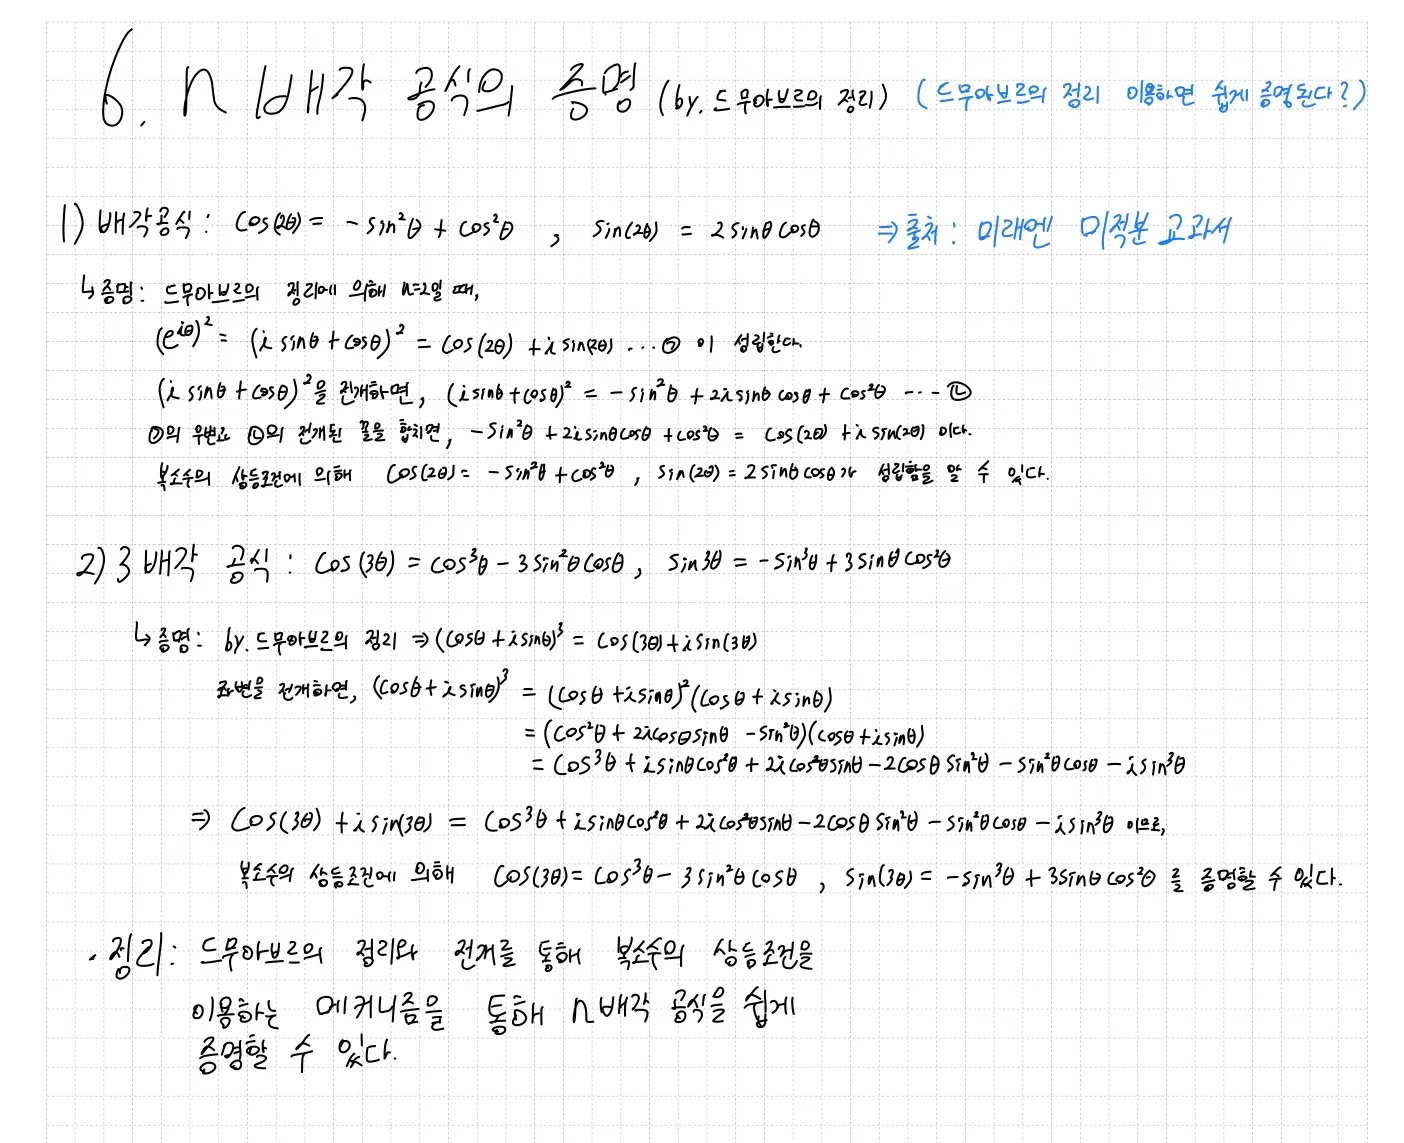 6. n배각 공식의 증명 (by. 드무아브르의 정리) (드무아브르의 정리 이용하면 쉽게 증명된다?)
1) 배각공식 : cos(2θ) = -sin²θ + cos²θ , sin(2θ) = 2sinθcosθ ⇒출처 : 미래엔 미적분 교과서
↳증명 : 드무아브르의 정리에 의해 n=2일 때,
(e^{iθ})² = (i sinθ + cosθ)² = cos(2θ) + i sin(2θ) ...㉠ 이 성립한다.
(i sinθ + cosθ)²을 전개하면, (i sinθ + cosθ)² = -sin²θ + 2i sinθ cosθ + cos²θ ...㉡
㉠의 우변과 ㉡의 전개된 꼴을 합치면, -sin²θ + 2i sinθcosθ + cos²θ = cos(2θ) + i sin(2θ) 이다.
복소수의 상등조건에 의해 cos(2θ) = -sin²θ + cos²θ , sin(2θ) = 2sinθ cosθ가 성립함을 알 수 있다.
2) 3배각 공식 : cos(3θ) = cos³θ - 3sin²θcosθ, sin3θ = -sin³θ + 3sinθcos²θ
↳증명 : by. 드무아브르의 정리 ⇒ (cosθ + i sinθ)³ = cos(3θ) + i sin(3θ)
좌변을 전개하면, (cosθ + i sinθ)³ = (cosθ + i sinθ)²(cosθ + i sinθ)
= (cos²θ + 2i cosθ sinθ - sin²θ)(cosθ + i sinθ)
= cos³θ + i sinθcos²θ + 2i cos²θ sinθ - 2cosθ sin²θ - sin²θ cosθ - i sin³θ
⇒ cos(3θ) + i sin(3θ) = cos³θ + i sinθcos²θ + 2i cos²θ sinθ - 2cosθ sin²θ - sin²θ cosθ - i sin³θ 이므로,
복소수의 상등조건에 의해 cos(3θ) = cos³θ - 3sin²θ cosθ , sin(3θ) = -sin³θ + 3sinθ cos²θ 를 증명할 수 있다.
· 정리 : 드무아브르의 정리와 전개를 통해 복소수의 상등조건을
이용하는 메커니즘을 통해 n배각 공식을 쉽게
증명할 수 있다.